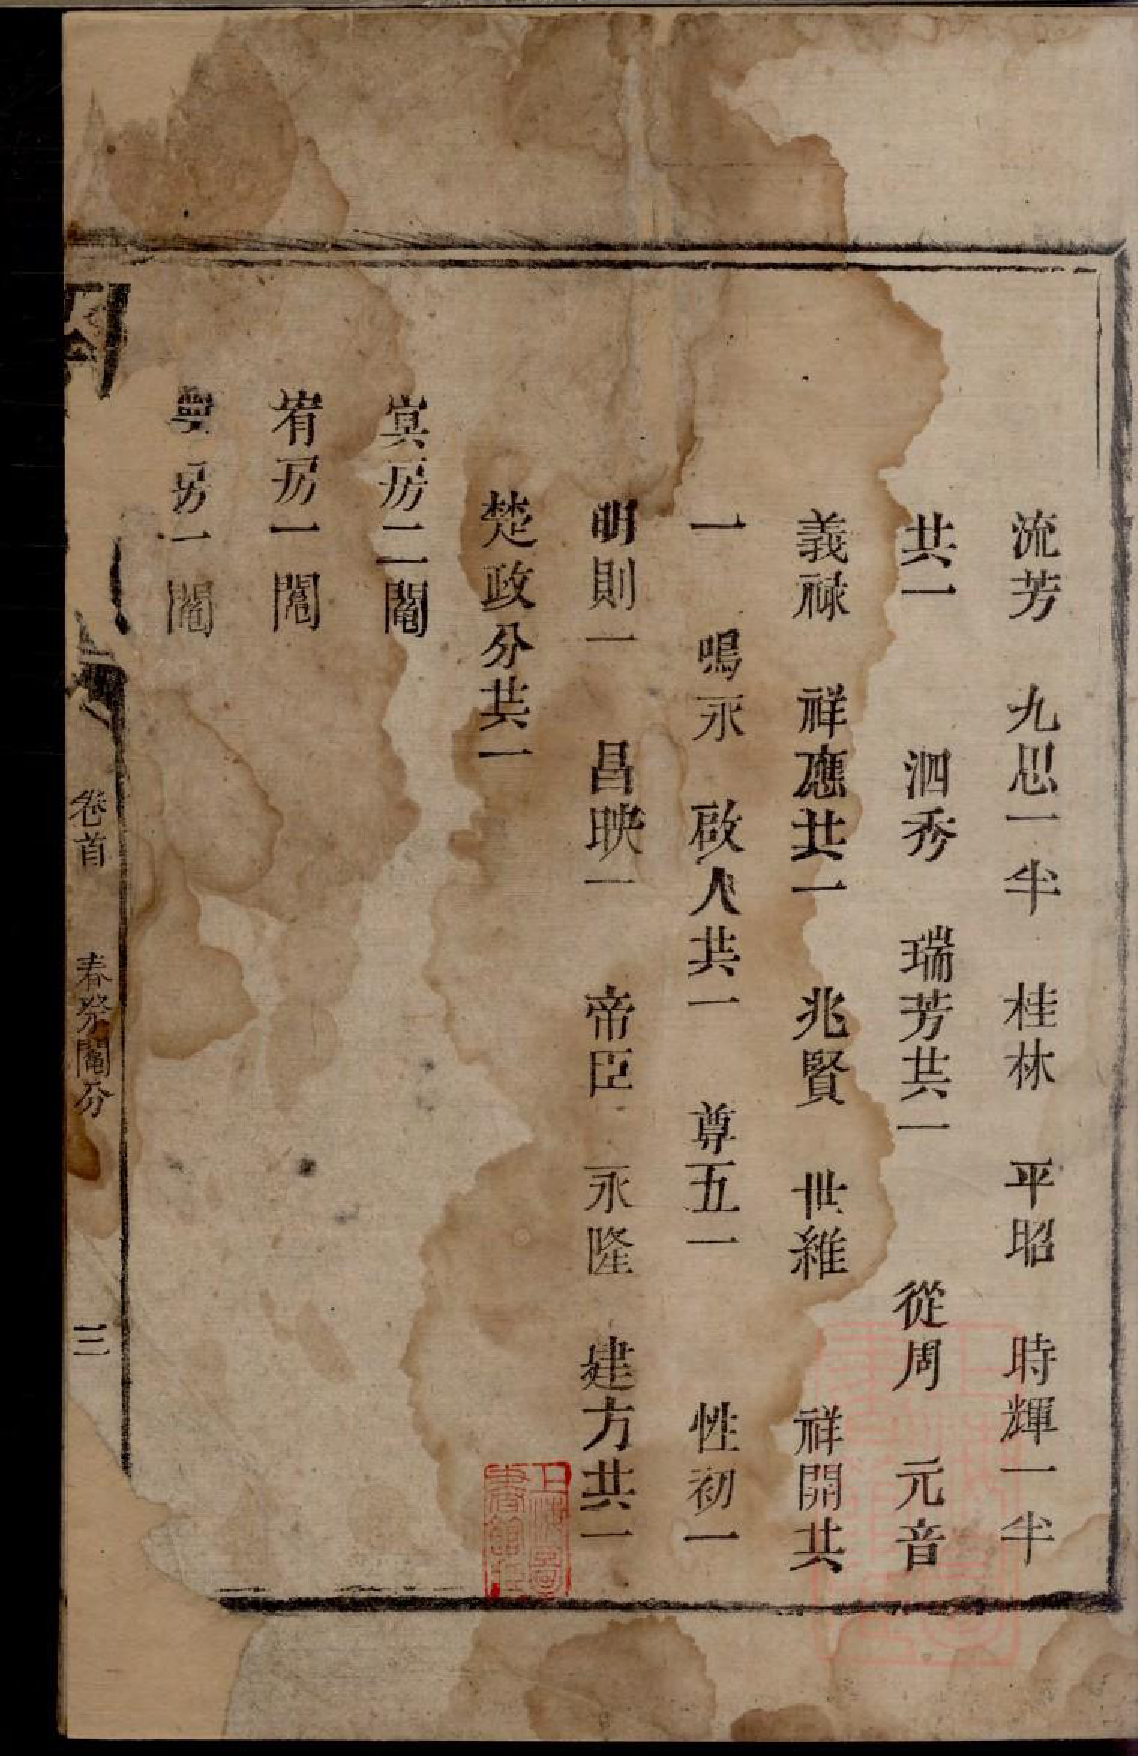 流芳　九思一半　桂林　平昭　時輝一半
共一　泗秀　瑞芳共一　從周　元音
義祿　祥應共一　兆賢　世維　祥開共
一　鳴永　啟人共一　尊五一　性初一
明則一　昌映一　帝臣　永隆　建方共一
楚政分共一
房二鬮
房一鬮
房一鬮
卷首　春祭鬮分　三